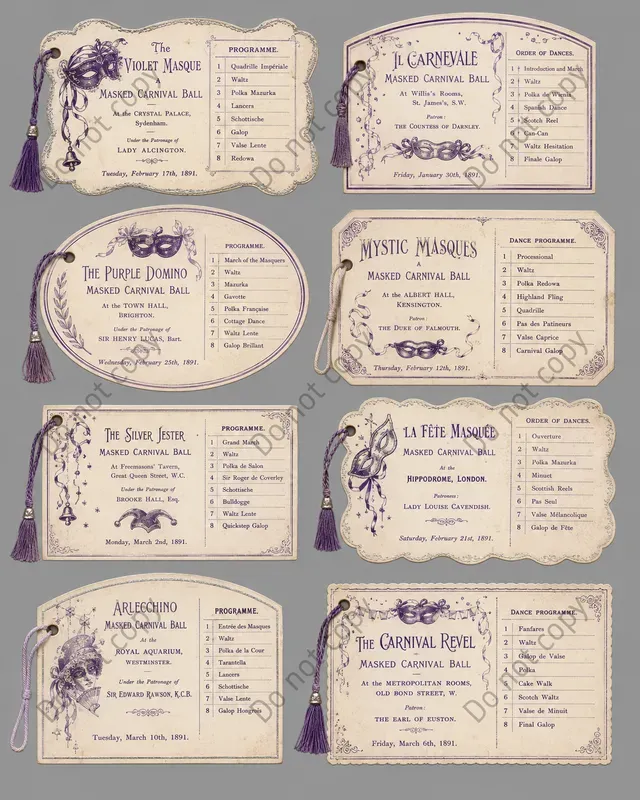 The
VIOLET MASQUE
A
MASKED CARNIVAL BALL
At the CRYSTAL PALACE,
Sydenham.
Under the Patronage of
LADY ALCINGTON.
Tuesday, February 17th, 1891.
PROGRAMME.
1 Quadrille Impériale
2 Waltz
3 Polka Mazurka
4 Lancers
5 Schottische
6 Galop
7 Valse Lente
8 Redowa
IL CARNEVALE
MASKED CARNIVAL BALL
At Willis's Rooms,
St. James's, S.W.
Patron:
THE COUNTESS OF DARNLEY.
Friday, January 30th, 1891.
ORDER OF DANCES.
1 Introduction and March
2 Waltz
3 Polka de Wienia
4 Spanish Dance
5 Scotch Reel
6 Can-Can
7 Waltz Hesitation
8 Finale Galop
THE PURPLE DOMINO
MASKED CARNIVAL BALL
At the TOWN HALL,
BRIGHTON.
Under the Patronage of
SIR HENRY LUCAS, Bart.
Wednesday, February 25th, 1891.
PROGRAMME.
1 March of the Masquers
2 Waltz
3 Mazurka
4 Gavotte
5 Polka Française
6 Cottage Dance
7 Waltz Lente
8 Galop Brillant
MYSTIC MASQUES
A
MASKED CARNIVAL BALL
At the ALBERT HALL,
KENSINGTON.
Patron:
THE DUKE OF FALMOUTH.
Thursday, February 12th, 1891.
DANCE PROGRAMME.
1 Processional
2 Waltz
3 Polka Redowa
4 Highland Fling
5 Quadrille
6 Pas des Patineurs
7 Valse Caprice
8 Carnival Galop
THE SILVER JESTER
MASKED CARNIVAL BALL
At Freemasons' Tavern,
Great Queen Street, W.C.
Under the Patronage of
BROOKE HALL, Esq.
Monday, March 2nd, 1891.
PROGRAMME.
1 Grand March
2 Waltz
3 Polka de Salon
4 Sir Roger de Coverley
5 Schottische
6 Bulldogge
7 Waltz Lente
8 Quickstep Galop
LA FÊTE MASQUÉE
MASKED CARNIVAL BALL
At the
HIPPODROME, LONDON.
Patroness:
LADY LOUISE CAVENDISH.
Saturday, February 21st, 1891.
ORDER OF DANCES.
1 Ouverture
2 Waltz
3 Polka Mazurka
4 Minuet
5 Scottish Reels
6 Pas Seul
7 Valse Mélancolique
8 Galop de Fête
ARLECCHINO
MASKED CARNIVAL BALL
At the
ROYAL AQUARIUM,
WESTMINSTER.
Under the Patronage of
SIR EDWARD RAWSON, K.C.B.
Tuesday, March 10th, 1891.
PROGRAMME.
1 Entrée des Masques
2 Waltz
3 Polka de la Cour
4 Tarantella
5 Lancers
6 Schottische
7 Valse Lente
8 Galop Hongrois
THE CARNIVAL REVEL
MASKED CARNIVAL BALL
At the METROPOLITAN ROOMS,
OLD BOND STREET, W.
Patron:
THE EARL OF EUSTON.
Friday, March 6th, 1891.
DANCE PROGRAMME.
1 Fanfares
2 Waltz
3 Galop de Valse
4 Polka
5 Cake Walk
6 Scotch Waltz
7 Valse de Minuit
8 Final Galop
Do not copy
Do not copy
Do not copy
Do not copy
Do not copy
Do not copy
Do not copy
Do not copy